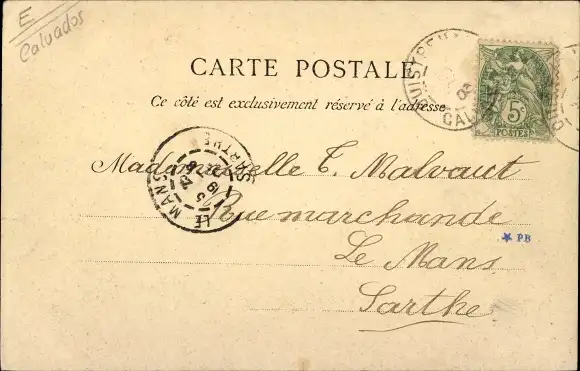 E
Calvados
CARTE POSTALE
Ce côté est exclusivement réservé à l'adresse
OUISTREHAM
CAL
5c
POSTES
LE MANS
SARTHE
Mademoiselle T. Malvaut
Rue marchande
Le Mans
Sarthe
PB